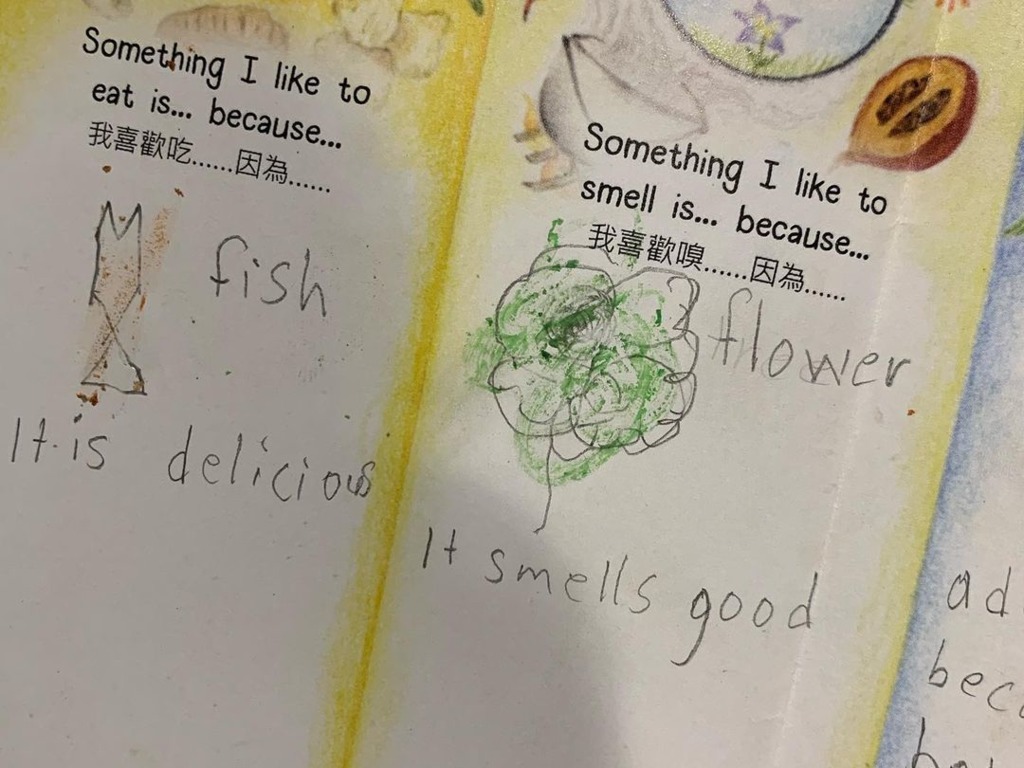 Something I like to
eat is... because...
我喜歡吃......因為......
fish
It is delicious
Something I like to
smell is... because...
我喜歡嗅......因為......
flower
It smells good